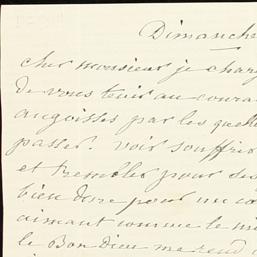 Dimanche
cher monsieur je charg
de vous tenir au coura
angoisses par les quelle
passer. voir souffrir
et trembler pour des
bien dure pour un co
aimant comme le mi
le Bon Dieu me rend